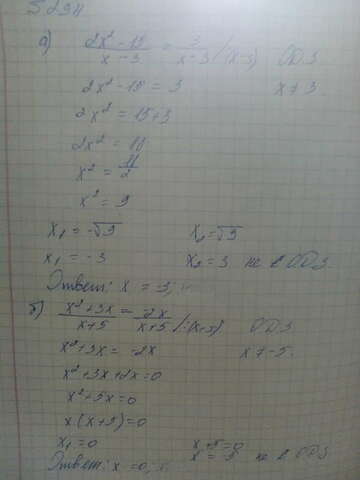 а) (2x² - 15)/(x - 3) = 3/(x - 3) /·(x-3) ОДЗ
2x² - 15 = 3 x ≠ 3
2x² = 15+3
2x² = 18
x² = 18/2
x² = 9
x₁ = -√9 x₂ = √9
x₁ = -3 x₂ = 3 не в ОДЗ
Ответ: x = 3,
б) (x² + 3x)/(x+5) = -2x/(x+5) /·(x+5) ОДЗ
x² + 3x = -2x x ≠ -5.
x² + 3x + 2x = 0
x² + 5x = 0
x·(x+5) = 0
x₁ = 0 x+5 = 0
x = -5 не в ОДЗ
Ответ: x = 0,